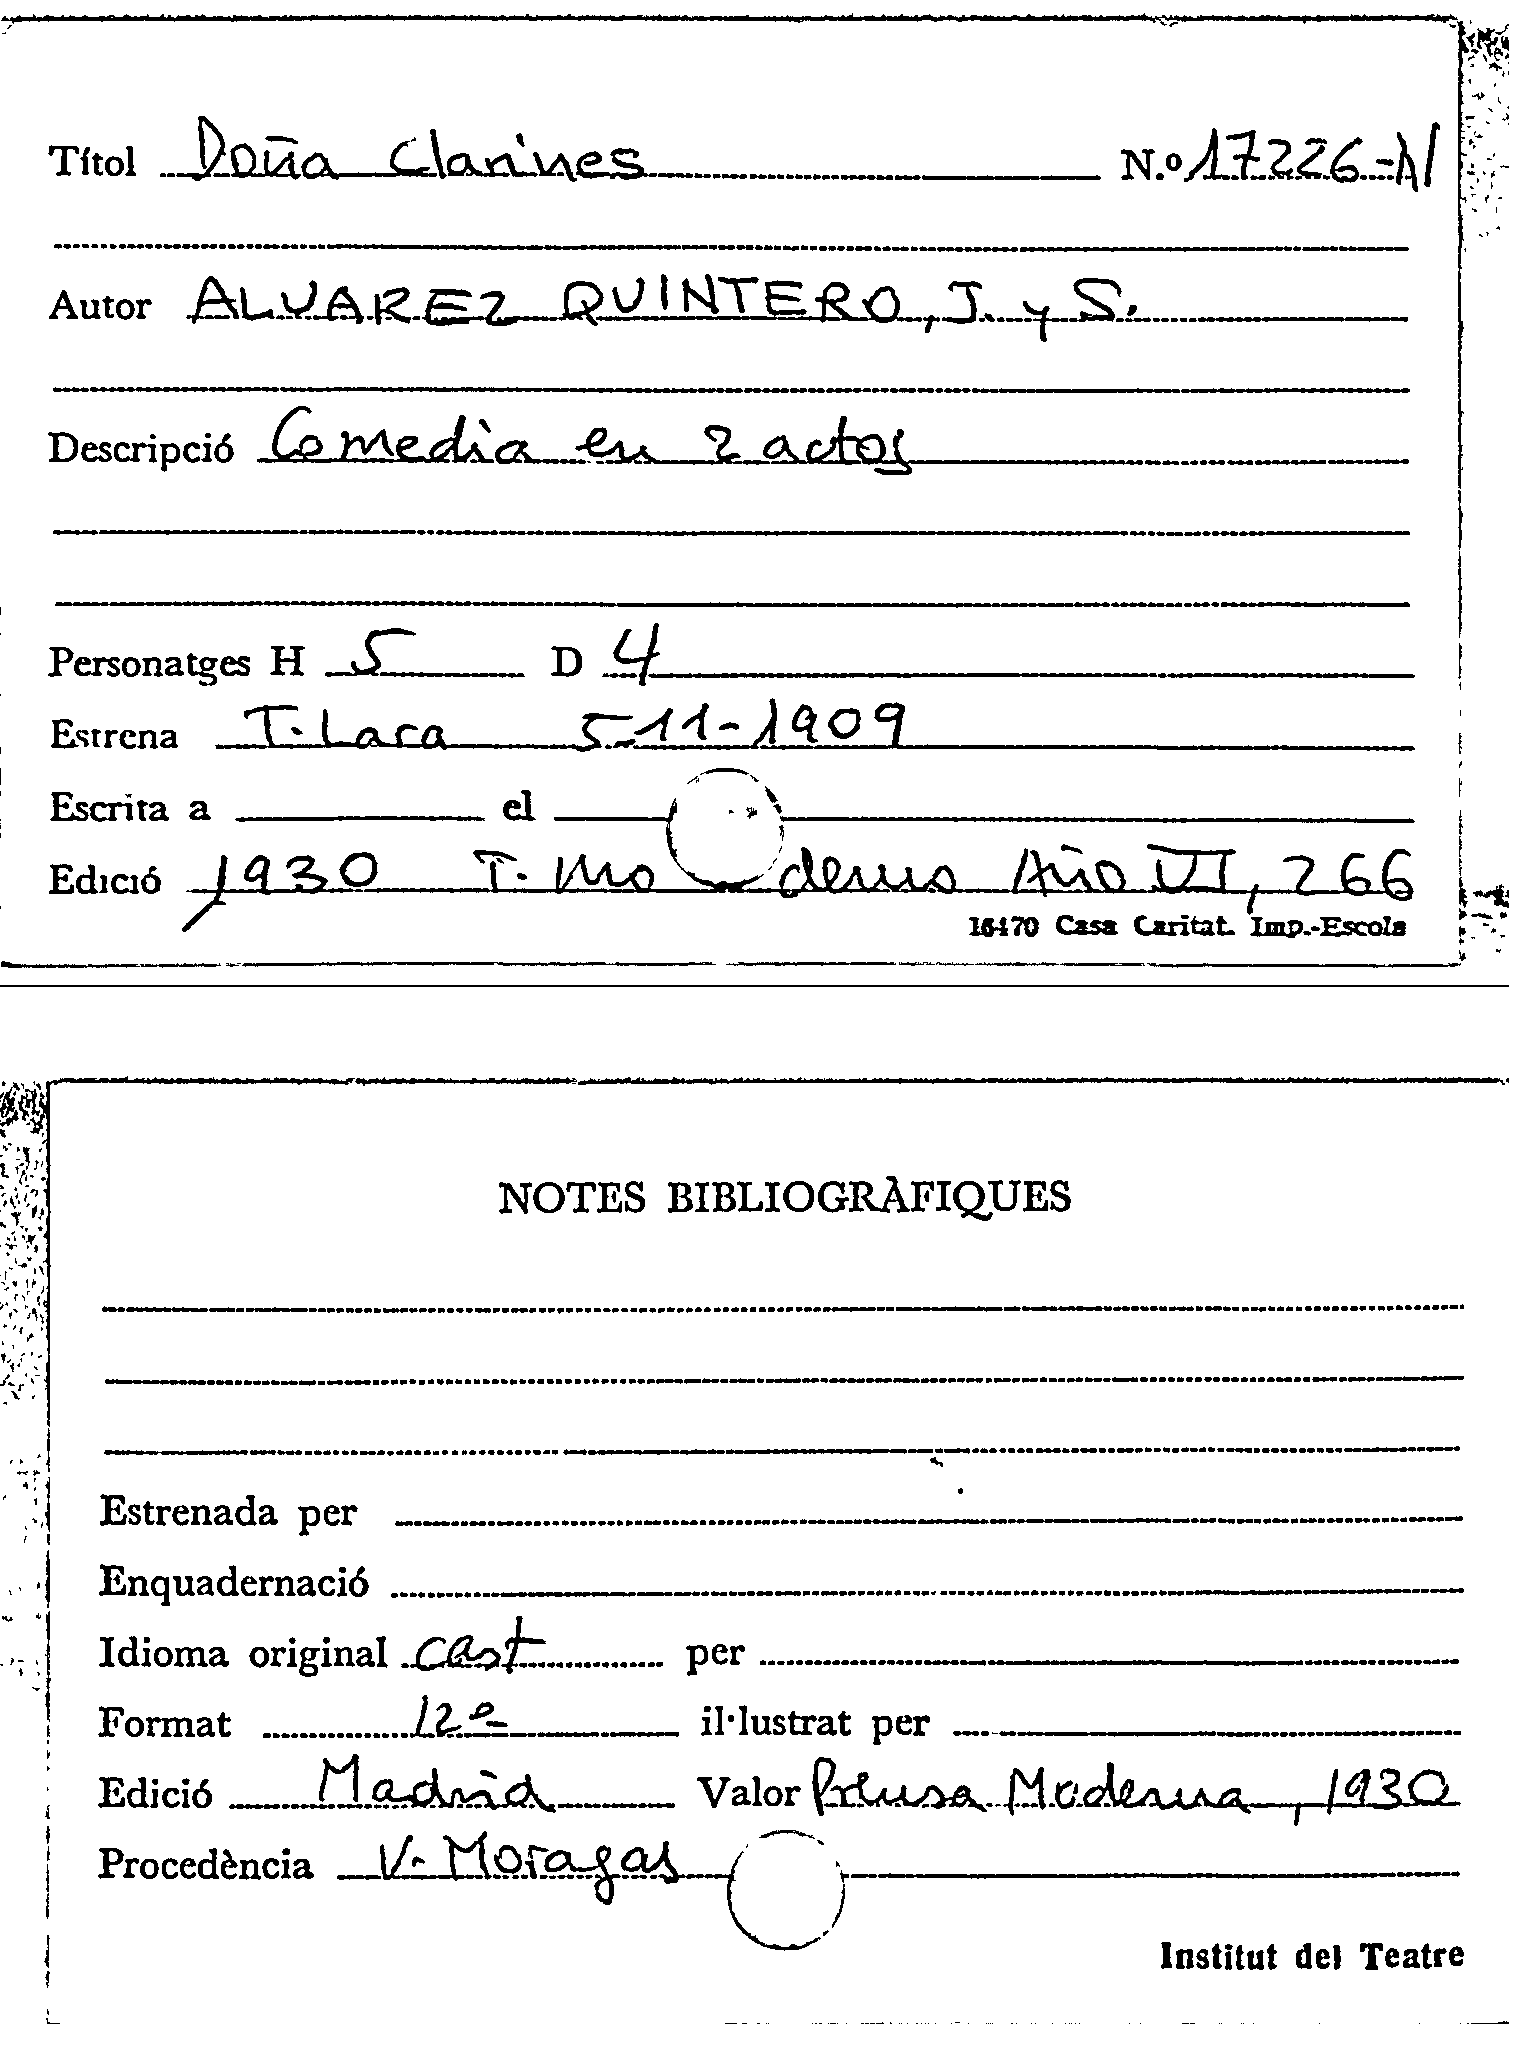 Títol Doña Clarines N.º 17226-N
Autor ALVAREZ QUINTERO, J. y S.
Descripció Comedia en 2 actos
Personatges H 5 D 4
Estrena T. Lara 5-11-1909
Escrita a el
Edició 1930 T. Moderno Año VI, 266
16470 Casa Caritat. Imp.-Escola
NOTES BIBLIOGRÀFIQUES
Estrenada per
Enquadernació
Idioma original cast per
Format 12º il·lustrat per
Edició Madrid Valor Prensa Moderna, 1930
Procedència V. Moragas
Institut del Teatre